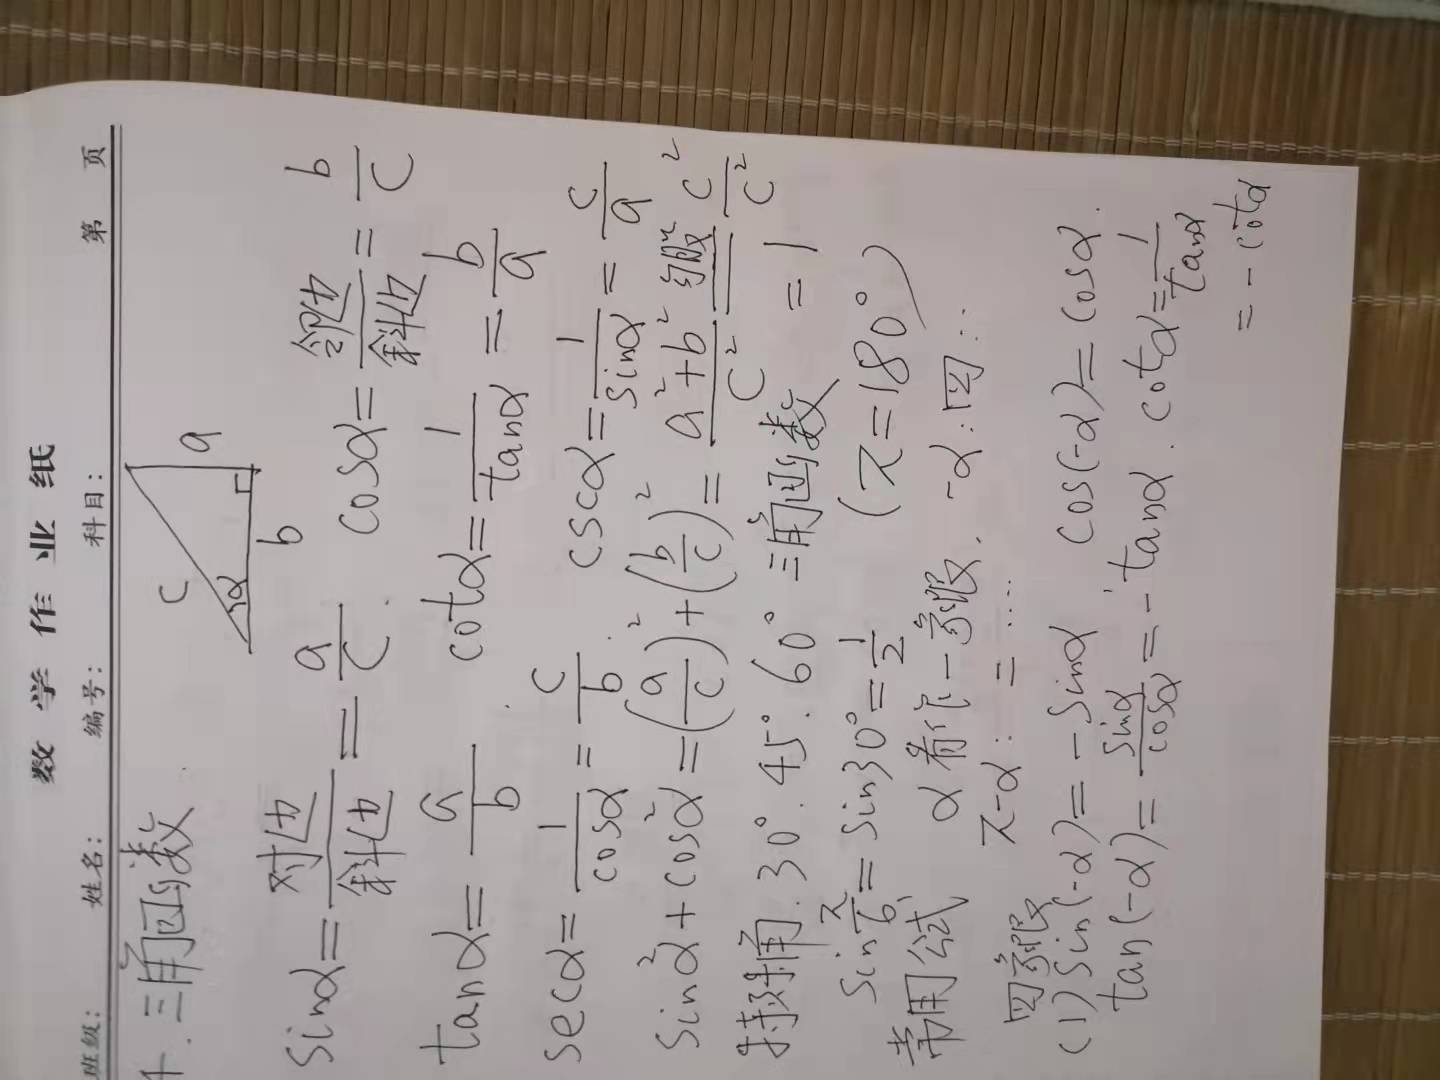 数学作业纸
班级: 姓名: 编号: 科目: 第 页
十.三角函数.
c a α b
sinα=对边/斜边=a/c. cosα=邻边/斜边=b/c
tanα=a/b. cotα=1/tanα=b/a
secα=1/cosα=c/b. cscα=1/sinα=c/a
sin²α+cos²α=(a/c)²+(b/c)²=(a²+b²)/c² 勾股 c²/c²
特殊角.30°.45°.60°三角函数 =1
sinπ/6=sin30°=1/2 (π=180°)
常用公式 α看作一象限. -α:四..
四象限 π-α: 二....
(1)sin(-α)=-sinα cos(-α)=cosα.
tan(-α)=sinα/cosα=-tanα. cotα=1/tanα
=-cotα